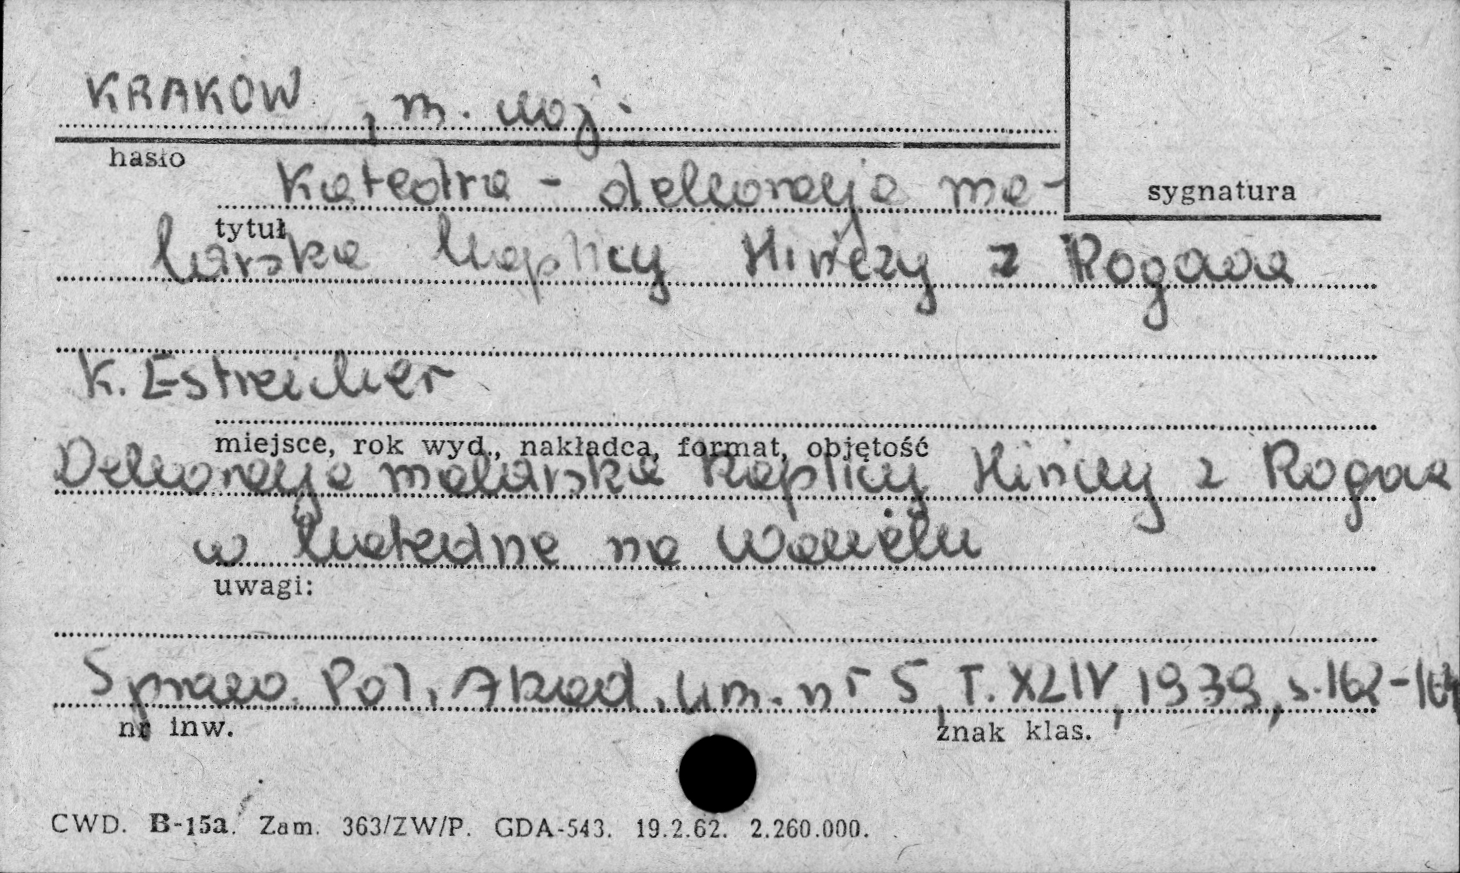 KRAKÓW, m. woj.
hasło
Katedra - dekoracja ma-
sygnatura
tytuł
larska kaplicy Hińczy z Rogowa
K. Estreicher
miejsce, rok wyd., nakładca, format, objętość
Dekoracja malarska kaplicy Hińczy z Rogow
w katedrze na Wawelu
uwagi:
Spraw. Pol. Akad. Um. nr 5, T. XLIV, 1939, s. 162-164
nr inw.
znak klas.
CWD. B-15a. Zam. 363/ZW/P. GDA-543. 19.2.62. 2.260.000.